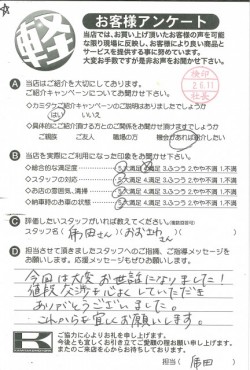 軽 お客様アンケート
当店では、お買い上げ頂いたお客様の声を可能
な限り現場に反映し、お客様により良い商品と
サービスを提供する事に努めています。
大変お手数ですが是非お声をお聞かせ下さい。
A 当店はご紹介を大切にしております。
ご紹介キャンペーンについてお聞かせ下さい。
◇カエタケご紹介キャンペーンのご説明はありましたでしょうか
はい いいえ
◇具体的にご紹介頂ける方とのご関係をお聞かせ頂けますでしょうか
ご親族 ご友人 職場の方 機会があれば紹介したい
B 当店を実際にご利用になった印象をお聞かせ下さい。
◇総合的な満足度 5.大満足 4.満足 3.ふつう 2.やや不満 1.不満
◇スタッフの対応 5.大満足 4.満足 3.ふつう 2.やや不満 1.不満
◇お店の雰囲気、清掃 5.大満足 4.満足 3.ふつう 2.やや不満 1.不満
◇納車時のお車の状態 5.大満足 4.満足 3.ふつう 2.やや不満 1.不満
C 評価したいスタッフがいれば教えてください。(複数回答可)
スタッフ名( さん)(おおさわさん)
D 担当させて頂きましたスタッフへのご指摘、ご指導メッセージを
お願いします。応援メッセージもぜひお願いします。
今回は大変お世話になりました!
値段交渉も心よくしていただき
ありがとうございました。
これからも宜しくお願いします。
K ご協力に心よりお礼を申し上げます。
今後とも宜しくお引き立てご愛顧の程お願い申し上げます。
またのご来店を心からお待ちしております。
担当( )